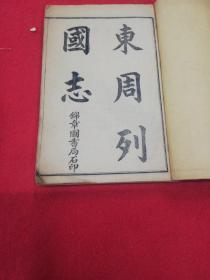 東周列
國志
錦章圖書局石印